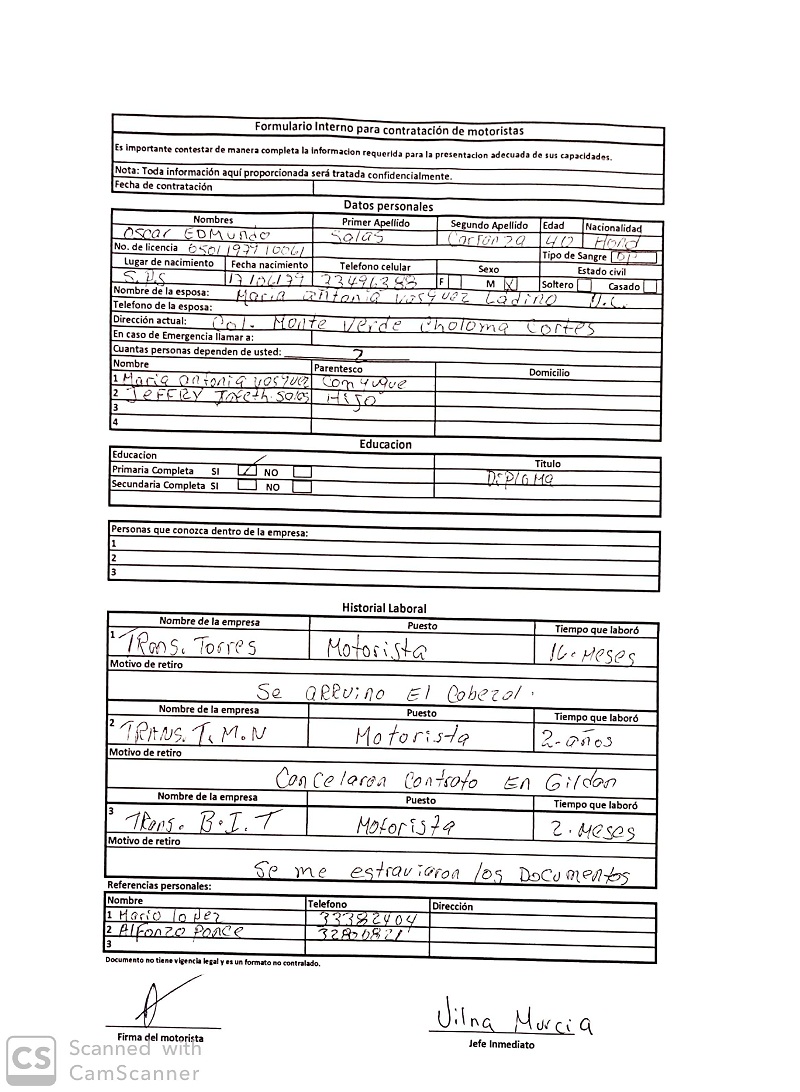 Formulario Interno para contratación de motoristas
Es importante contestar de manera completa la informacion requerida para la presentacion adecuada de sus capacidades.
Nota: Toda información aquí proporcionada será tratada confidencialmente.
Fecha de contratación
Datos personales
Nombres Primer Apellido Segundo Apellido Edad Nacionalidad
Oscar EDMundo Salas 40 Hond
No. de licencia 0501197910061 Tipo de Sangre
Lugar de nacimiento Fecha nacimiento Telefono celular Sexo Estado civil
S.P.S 17/06/79 33496383 F M X Soltero Casado
Nombre de la esposa: Maria antonia vasquez Ladino U.L.
Telefono de la esposa:
Dirección actual: Col. Monte verde choloma Cortes
En caso de Emergencia llamar a:
Cuantas personas dependen de usted: 2
Nombre Parentesco Domicilio
1 Maria antonia vasquez
2 JEFFRY Salas Hijo
3
4
Educacion
Educacion Titulo
Primaria Completa SI NO DiPloMa
Secundaria Completa SI NO
Personas que conozca dentro de la empresa:
1
2
3
Historial Laboral
Nombre de la empresa Puesto Tiempo que laboró
1 TRans. Torres Motorista Meses
Motivo de retiro
Se aRRuino El Cabezal.
Nombre de la empresa Puesto Tiempo que laboró
2 TRANS. T. M. N Motorista 2-años
Motivo de retiro
Cancelaron Contrato En Gildan
Nombre de la empresa Puesto Tiempo que laboró
3 TRans. B.I.T Motorista 2.Meses
Motivo de retiro
Se me estraviaron los Documentos
Referencias personales:
Nombre Telefono Dirección
1 Mario lopez 33382404
2 Alfonzo Ponce 32820821
3
Documento no tiene vigencia legal y es un formato no contralado.
Vilna Murcia
Firma del motorista Jefe Inmediato
CS Scanned with
CamScanner